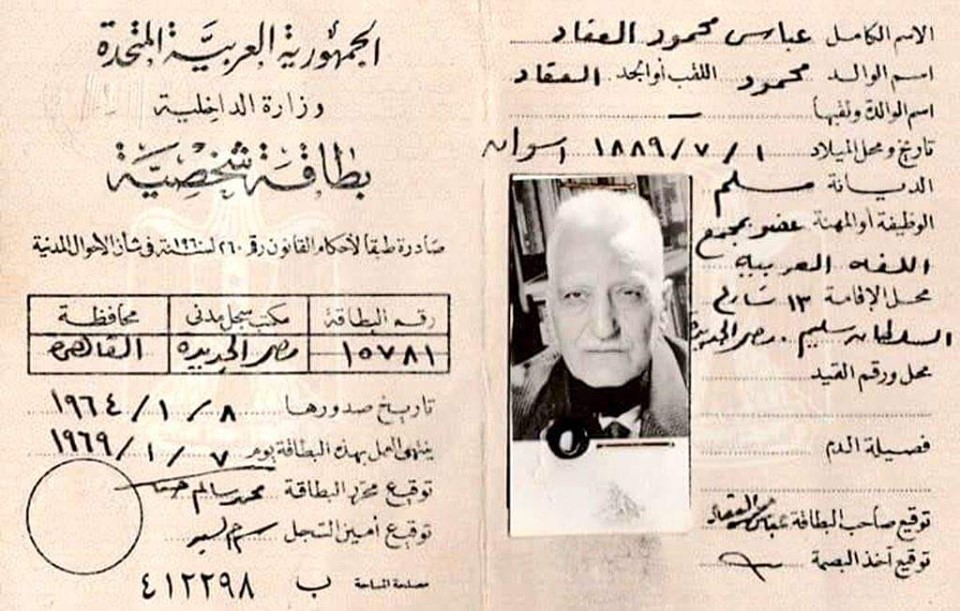 الاسم الكامل عباس محمود العقاد
اسم الوالد محمود اللقب أو الجد العقاد
اسم الوالدة ولقبها —
تاريخ ومحل الميلاد ١ / ٧ / ١٨٨٩ اسوان
الديانة مسلم
الوظيفة أو المهنة عضو بمجمع
اللغه العربيه
محل الإقامة ١٣ شارع
السلطان سليم . مصر الجديدة
محل ورقم القيد
فصيلة الدم
توقيع صاحب البطاقة عباس العقاد
توقيع آخذ البصمة
الجمهورية العربية المتحدة
وزارة الداخلية
بطاقة شخصية
صادرة طبقا لأحكام القانون رقم ٢٦٠ لسنة ١٩٦٠ فى شأن الأحوال المدنية
رقم البطاقة مكتب سجل مدنى محافظة
١٥٧٨١ مصر الجديدة القاهرة
تاريخ صدورها ٨ / ١ / ١٩٦٤
ينتهى العمل بهذه البطاقة يوم ٧ / ١ / ١٩٦٩
توقيع محرر البطاقة محمد سالم
توقيع أمين السجل
مصلحة المساحة ب ٤١٢٢٩٨